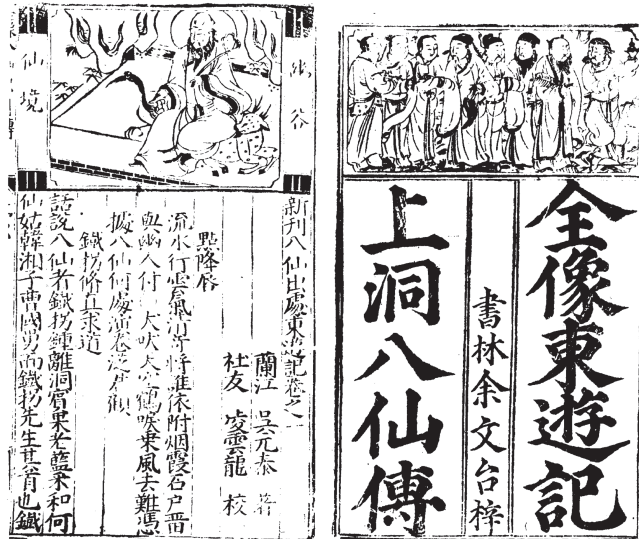 全像東遊記
書林余文台梓
上洞八仙傳
幽谷
仙境
新刊八仙出處東遊記卷之一
蘭江 吳元泰 著
社友 凌雲龍 校
點降唇
流水行雲 將誰依附烟霞石戶晋
與幽人付 犬吠天空鶴唳乘風去難憑
據八仙何處演卷 君觀
鐵拐脩真求道
話說八仙者鐵拐鍾離洞賓果老藍采和何
仙姑韓湘子曹國舅而鐵拐先生其首也鐵